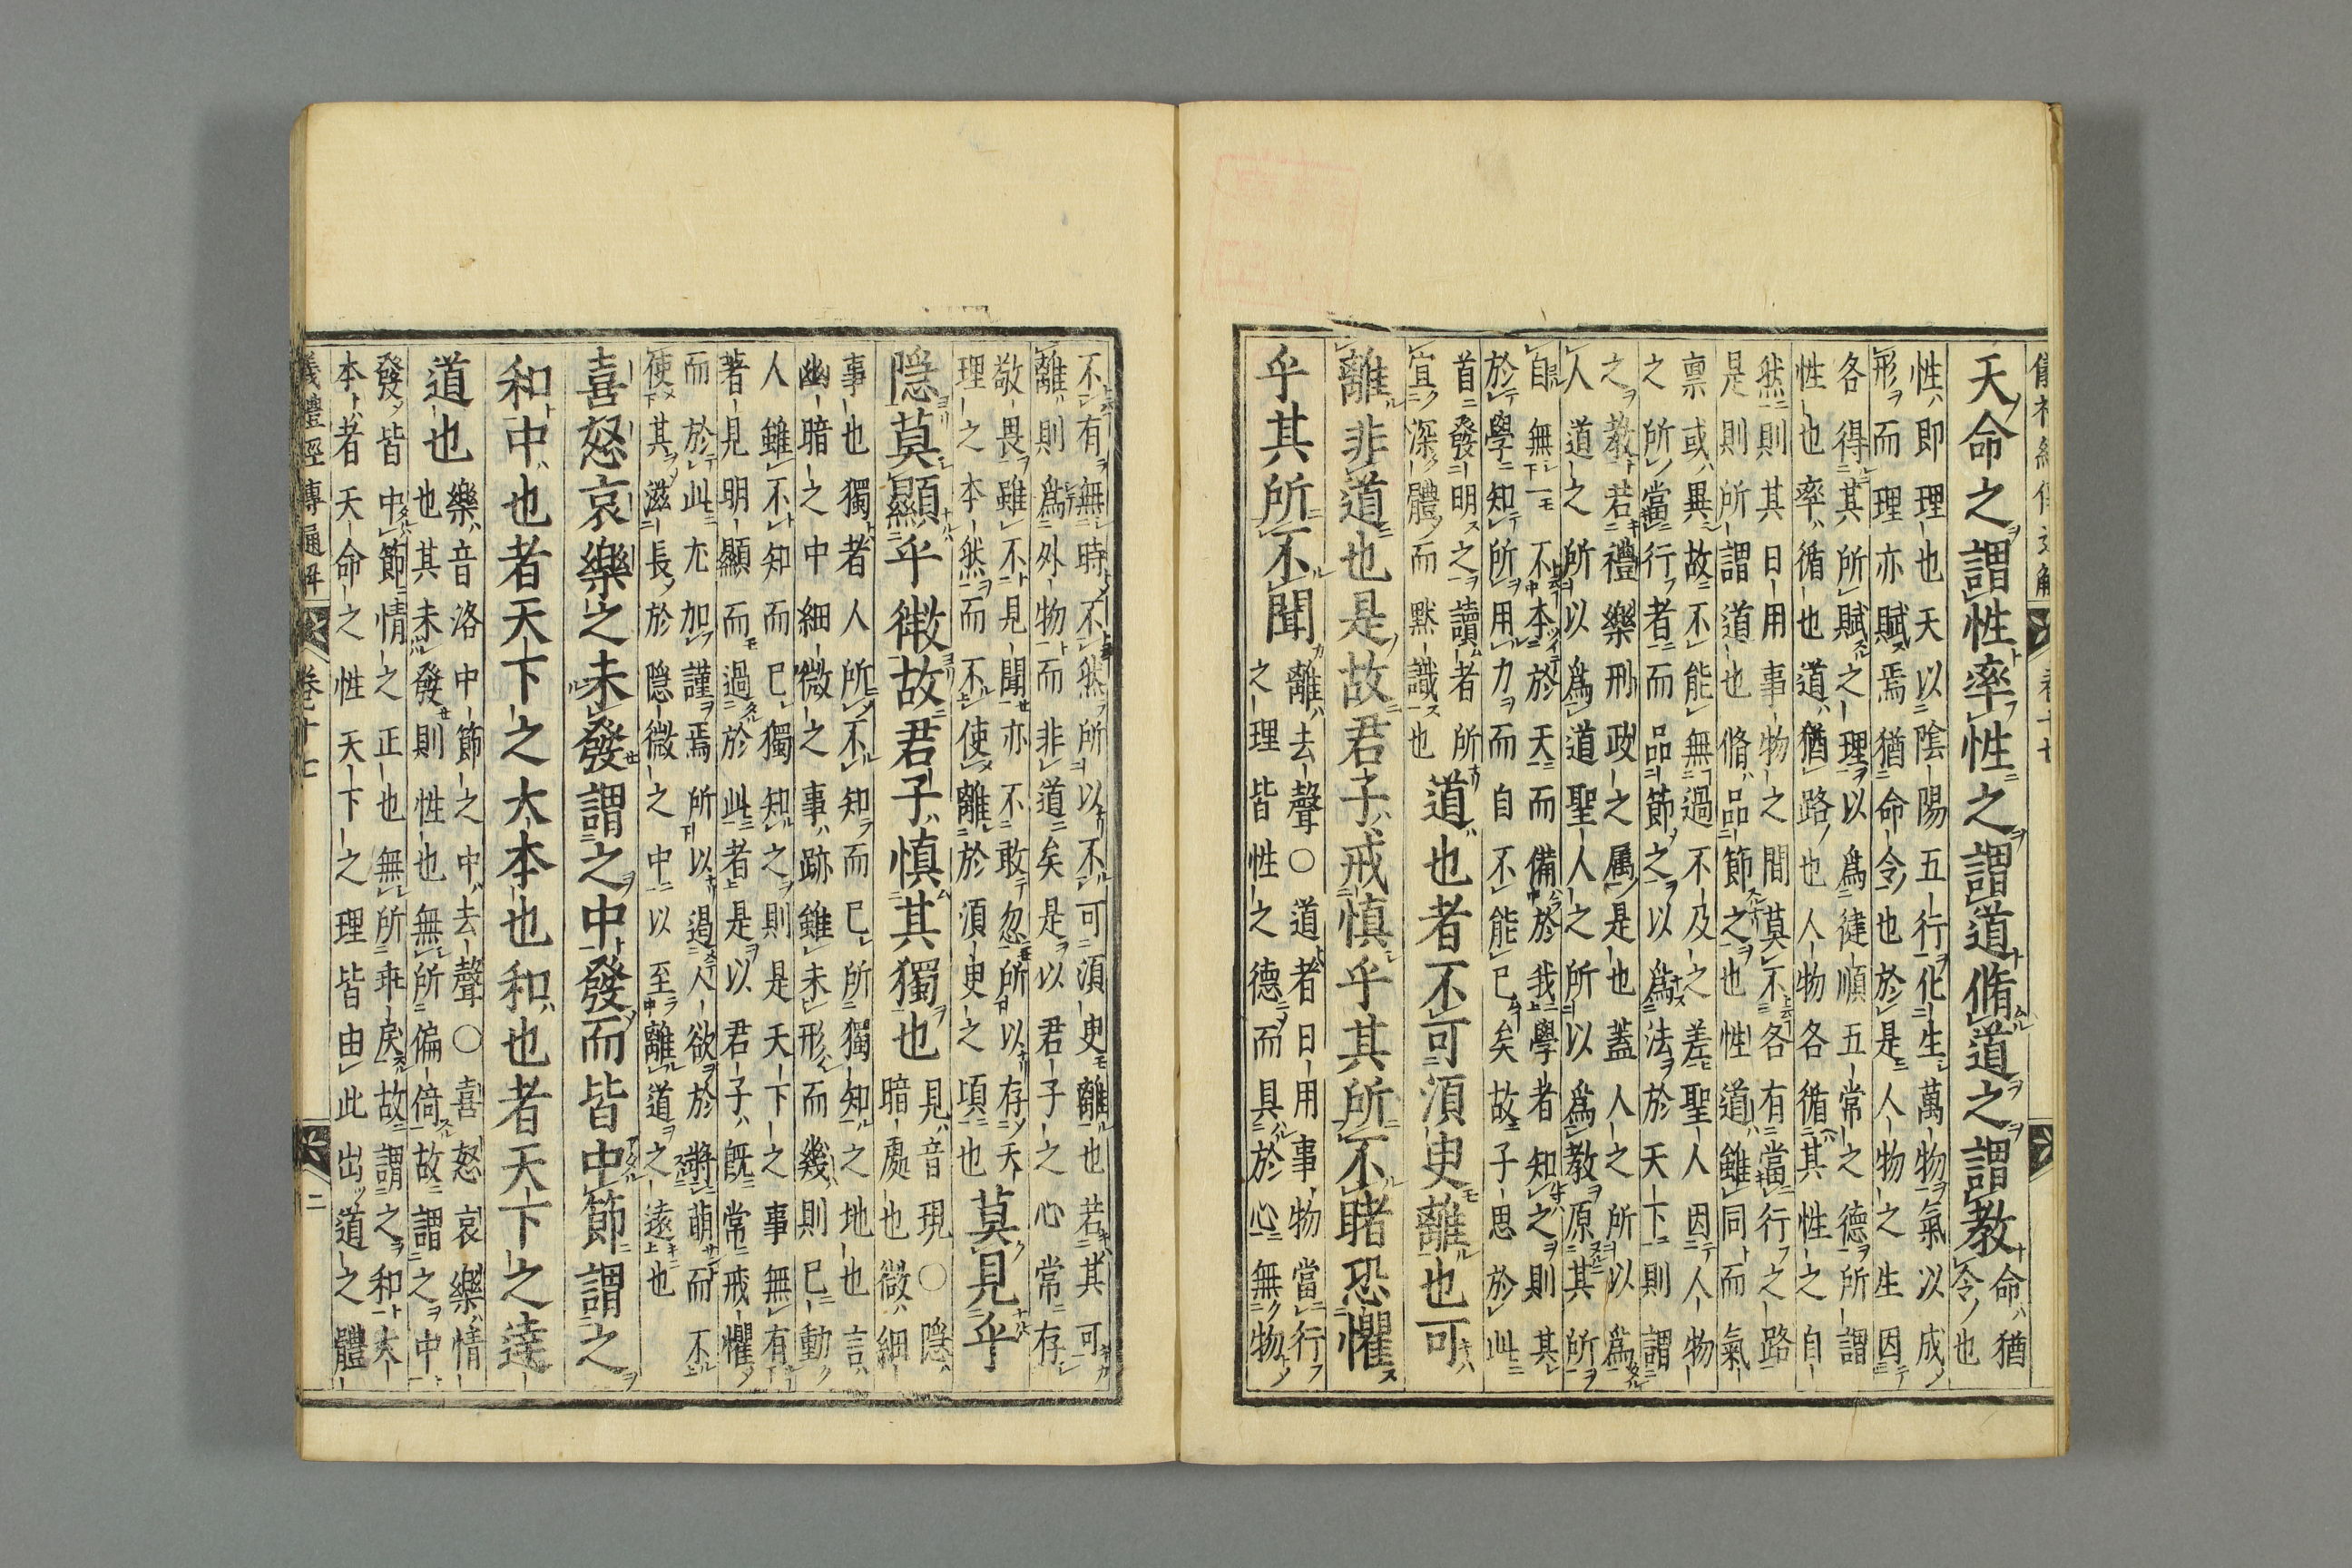 天命之謂性率性之謂道脩道之謂教命猶
令也
性即理也天以陰陽五行化生萬物氣以成
形而理亦賦焉猶命令也於是人物之生因
各得其所賦之理以爲徤順五常之德所謂
性也率循也道猶路也人物各循其性之自
然則其日用事物之間莫不各有當行之路
是則所謂道也脩品節之也性道雖同而氣
禀或異故不能無過不及之差聖人因人物
之所當行者而品節之以爲法於天下則謂
之教若禮樂刑政之屬是也蓋人之所以爲
人道之所以爲道聖人之所以爲教原其所
自無一不本於天而備於我學者知之則其
於學知所用力而自不能已矣故子思於此
首發明之讀者所
宜深體而默識也
道也者不可須臾離也可
離非道也是故君子戒慎乎其所不睹恐懼
乎其所不聞
離去聲〇道者日用事物當行
之理皆性之德而具於心無物
不有無時不然所以不可須臾離也若其可
離則爲外物而非道矣是以君子之心常存
敬畏雖不見聞亦不敢忽所以存天
理之本然而不使離於須臾之頃也
莫見乎
隱莫顯乎微故君子慎其獨也
見音現〇隱
暗處也微細
事也獨者人所不知而已所獨知之地也言
幽暗之中細微之事跡雖未形而幾則已動
人雖不知而已獨知之則是天下之事無有
著見明顯而過於此者是以君子既常戒懼
而於此尤加謹焉所以遏人欲於將萌而不
使其滋長於隱微之中以至離道之遠也
喜怒哀樂之未發謂之中發而皆中節謂之
和中也者天下之大本也和也者天下之達
道也
樂音洛中節之中去聲〇喜怒哀樂情
也其未發則性也無所偏倚故謂之中
發皆中節情之正也無所乖戾故謂之和大
本者天命之性天下之理皆由此出道之體
儀禮經傳通解 卷十七 二